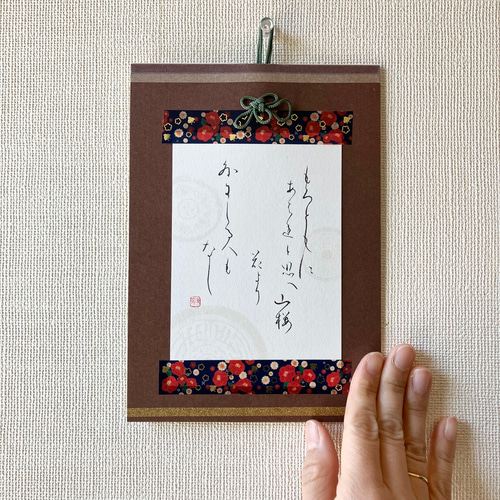 もろともに
あはれと思へ山桜
花より
外にしる人も
なし